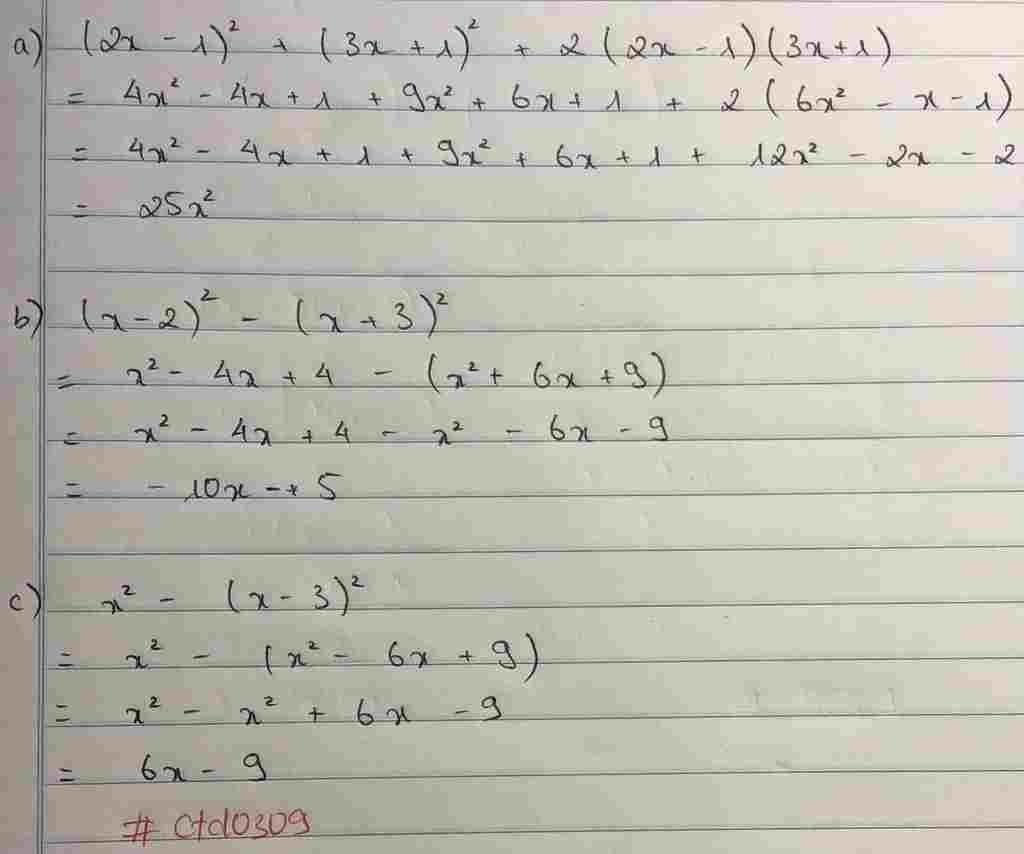 a) (2x - 1)² + (3x + 1)² + 2 (2x - 1)(3x + 1)
= 4x² - 4x + 1 + 9x² + 6x + 1 + 2 (6x² - x - 1)
= 4x² - 4x + 1 + 9x² + 6x + 1 + 12x² - 2x - 2
= 25x²
b) (x - 2)² - (x + 3)²
= x² - 4x + 4 - (x² + 6x + 9)
= x² - 4x + 4 - x² - 6x - 9
= - 10x -+ 5
c) x² - (x - 3)²
= x² - (x² - 6x + 9)
= x² - x² + 6x - 9
= 6x - 9
# ctd0309